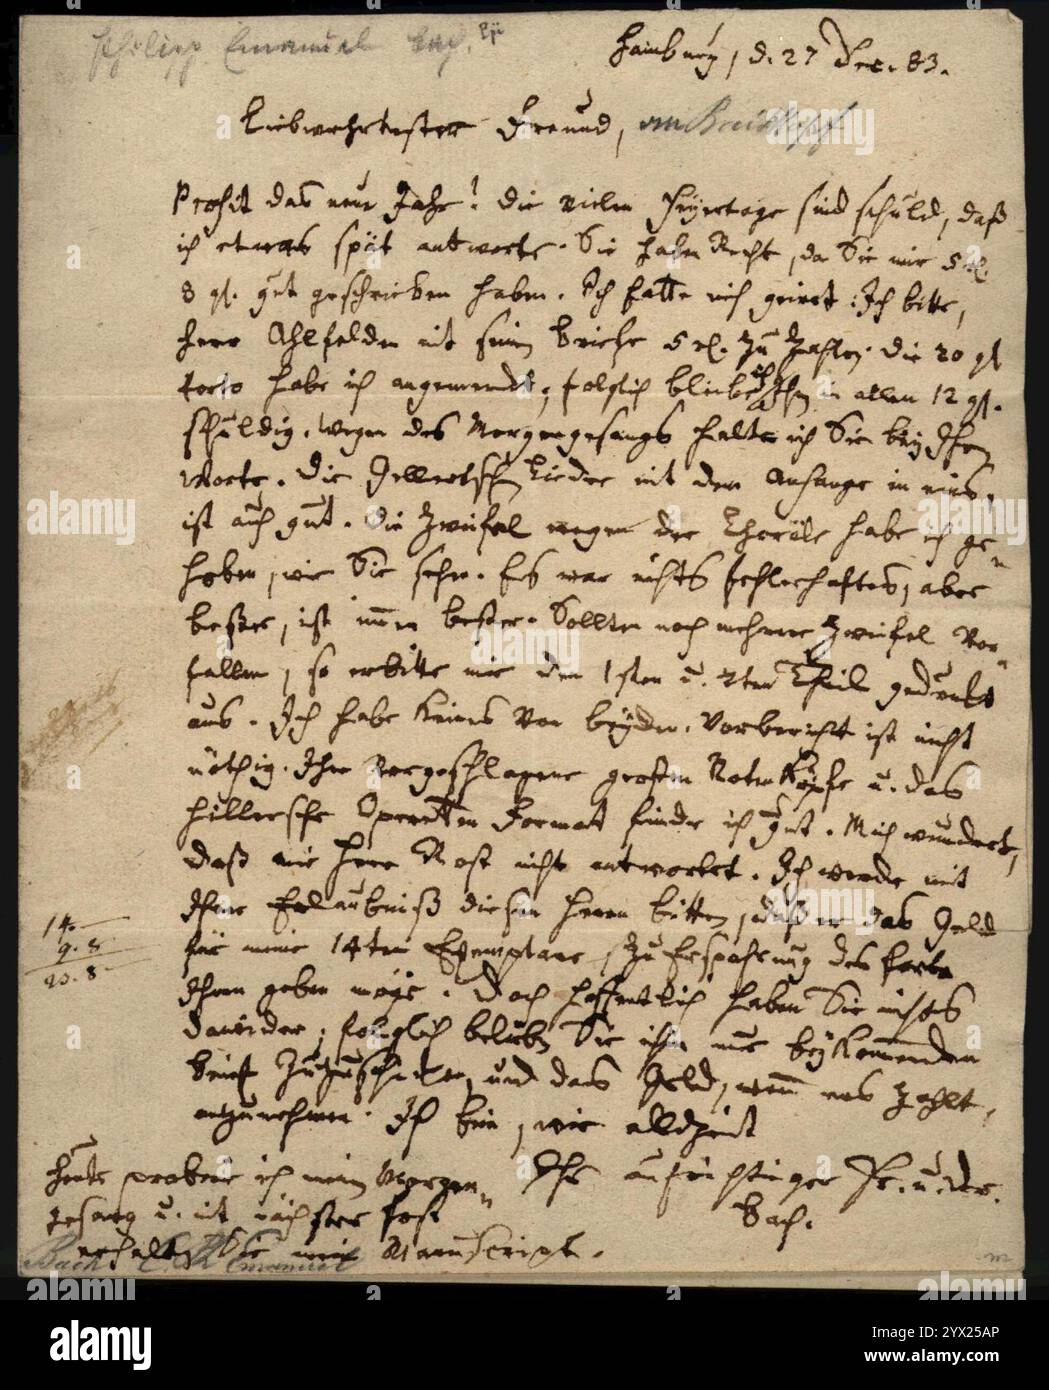 Philipp Emanuel Bach.
Hamburg, d. 27 Dec. 83.
Liebwehrtester Freund, an Breitkopf
Prosit das neue Jahr! Die vielen Feyertage sind schuld, daß
ich etwas spät antworte. Sie haben Recht, da Sie mir 5 rl.
8 gl. gut geschrieben haben. Ich hatte mich geirrt: Ich bitte,
Herr Ahlfelden mit seinem Briefe 5 rl. zu zahlen. Die 20 gl
porto habe ich angewendet, folglich bliebe ich Ihnen in allem 12 gl.
schuldig. Wegen des Morgengesangs halte ich Sie bey Ihrem
Worte. Die Gellertschen Lieder mit dem Anhange in eins,
ist auch gut. Die Zweifel wegen der Choräle habe ich ge-
hoben, wie Sie sehen. Es war nichts fehlerhaftes, aber
beßer, ist immer beßer. Sollten noch mehrere Zweifel vor-
fallen, so erbitte mir den 1sten u. 2ten Theil gedruckt
aus. Ich habe keines von beyden. Vorbericht ist nicht
nöthig. Ihre vorgeschlagene großen Notenköpfe u. das
Hillersche Operetten Format finde ich gut. Mich wundert,
daß mir Herr Rost nicht antwortet. Ich werde mit
Ihrer Erlaubniß diesen Herrn bitten, daß er das Geld
für meine 14 Exemplare, zu Erspahrung des porto
Ihnen geben möge. Doch hoffentlich haben Sie nichts
dawider; folglich belieben Sie ihm nur beykommenden
Brief zuzuschicken, und das Geld, wenn er es zahlt,
anzunehmen. Ich bin, wie alldzeit
14.
9. 8
20. 8
Ihr aufrichtiger Fr. u. Dr.
Bach.
Heute probire ich meinen Morgen-
gesang u. mit nächster Post
erhalten Sie mein Manuscript.
Bach C. Ph Emanuel
alamy
Image ID: 2YX25AP
www.alamy.com